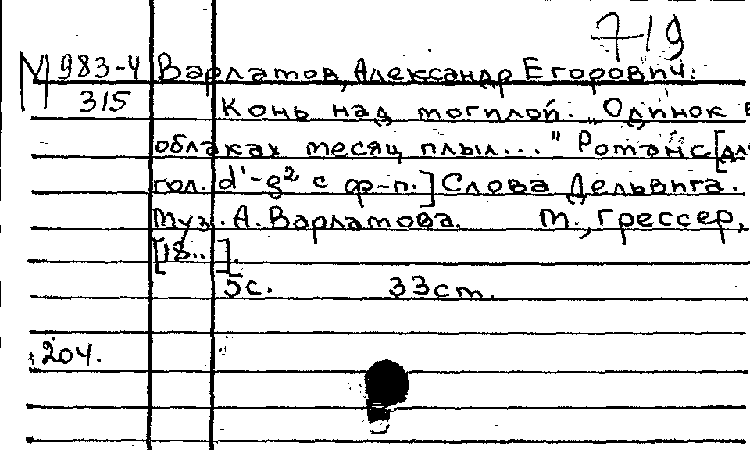 719
М 983-4 Варламов, Александр Егорович.
315 Конь над могилой. "Одинок в
облаках месяц плыл..." Романс [для
гол. d'-g² с ф-п.] Слова Дельвига.
Муз. А. Варламова. М., Грессер,
[18..].
5с. 33 ст.
204.